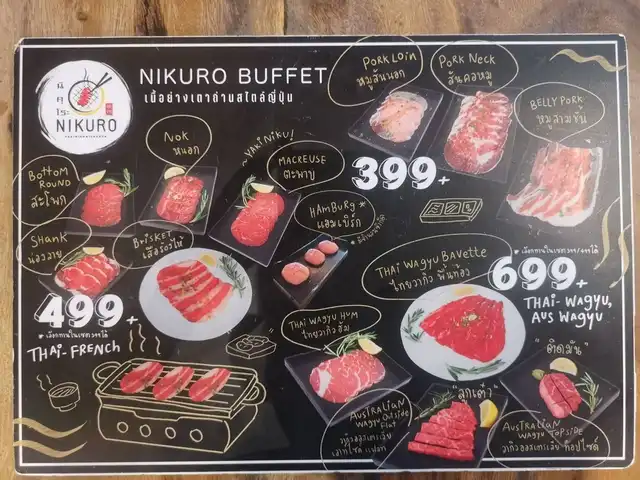 นิ
คุ
โระ
NIKURO
NIKURO BUFFET
เนื้อย่างเตาถ่านสไตล์ญี่ปุ่น
PORK LOIN
หมูสันนอก
PORK NECK
สันคอหมู
BELLY PORK
หมูสามชั้น
NOK
หนอก
~ YAKINIKU!
MACREUSE
ตะพาบ
399+
BOTTOM
ROUND
สะโพก
HAMBURG *
แฮมเบิร์ก
SHANK
น่องลาย
BRISKET
เสือร้องไห้
THAI WAGYU BAVETTE
ไทยวากิว พื้นท้อง
* เลือกทานในเซต 399/499 ได้
699+
THAI-WAGYU,
AUS WAGYU
499+
* เลือกทานในเซต 399 ได้
THAI-FRENCH
THAI WAGYU HUM
ไทยวากิว ฮัม
"ติดมัน"
"ลูกเต๋า"
AUSTRALIAN
WAGYU OUTSIDE
FLAT
วากิวออสเตรเลีย
เอาท์ไซด์ แฟลท
AUSTRALIAN
WAGYU TOPSIDE
วากิวออสเตรเลีย ท็อปไซด์